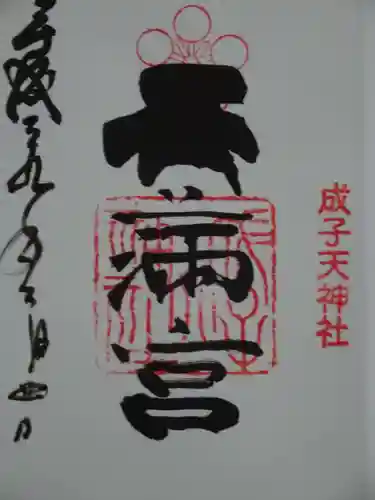 成子天神社
天満宮
平成二十九年六月四日